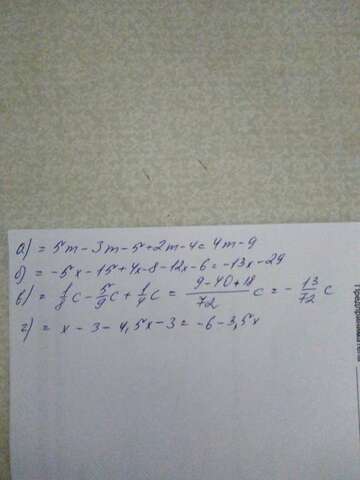 а) = 5m - 3m - 5 + 2m - 4 = 4m - 9
б) = -5x - 15 + 4x - 8 - 12x - 6 = -13x - 29
в) = 1/8 c - 5/9 c + 1/4 c = (9 - 40 + 18)/72 c = - 13/72 c
г) = x - 3 - 4,5x - 3 = -6 - 3,5x